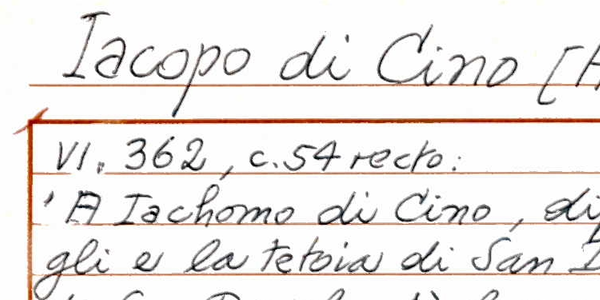 Iacopo di Cino [A
VI. 362, c.54 recto:
'A Iachomo di Cino, di
gli e la tetoia di San